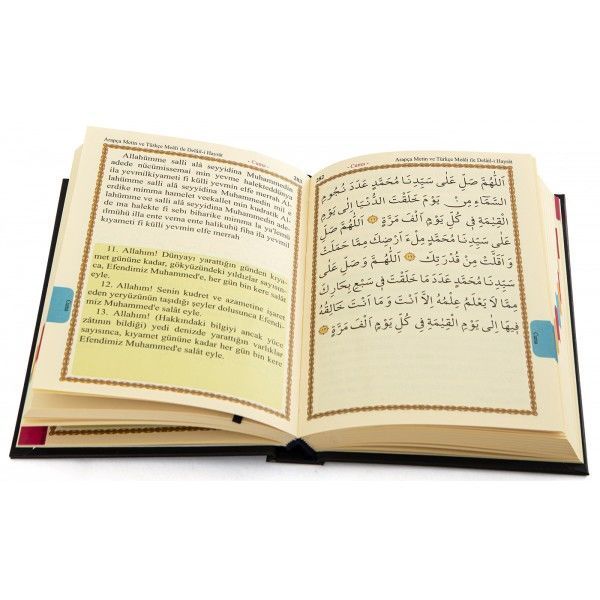 Arapça Metin ve Türkçe Meâli ile Delâil-i Hayrât
- Cuma -
283
Allahümme salli alâ seyyidina Muhammedin
adede nücûmissemai min yevme halekteddünya
ila yevmilkıyameti fi külli yevmin elfe merrah Al-
lahümme salli alâ seyyidina Muhammedin mil e
erdike mimma hamelet veekallet min kudratik Al-
lahümme ve salli alâ seyyidina Muhammedin aded-
de ma halekte fi seb biharike mimma la ya'lemü
ılmühü illa ente vema ente halikuhü fiha ila yevmil
kıyameti fi külli yevmin elfe merrah
11. Allahım! Dünyayı yarattığın günden kıya-
met gününe kadar, gökyüzündeki yıldızlar sayısın-
ca, Efendimiz Muhammed'e, her gün bin kere salât
eyle.
12. Allahım! Senin kudret ve azametine işaret
eden yeryüzünün taşıdığı şeyler dolusunca Efendi-
miz Muhammed'e salât eyle.
13. Allahım! (Hakkındaki bilgiyi ancak yüce
zâtının bildiği) yedi denizde yarattığın varlıklar
sayısınca, kıyamet gününe kadar her gün bin kere
Efendimiz Muhammed'e salât eyle.
Cuma
282
- Cuma -
Arapça Metin ve Türkçe Meâli ile Delâil-i Hayrât
اَللّٰهُمَّ صَلِّ عَلٰى سَيِّدِنَا مُحَمَّدٍ عَدَدَ نُجُومِ
السَّمَاءِ مِنْ يَوْمَ خَلَقْتَ الدُّنْيَا اِلٰى يَوْمِ
الْقِيٰمَةِ فِى كُلِّ يَوْمٍ اَلْفَ مَرَّةٍ ۝ اَللّٰهُمَّ صَلِّ
عَلٰى سَيِّدِنَا مُحَمَّدٍ مِلْءَ اَرْضِكَ مِمَّا حَمَلَتْ
وَ اَقَلَّتْ مِنْ قُدْرَتِكَ ۝ اَللّٰهُمَّ وَ صَلِّ عَلٰى
سَيِّدِنَا مُحَمَّدٍ عَدَدَ مَا خَلَقْتَ فِى سَبْعِ بِحَارِكَ
مِمَّا لَا يَعْلَمُ عِلْمُهُ اِلَّا اَنْتَ وَ مَا اَنْتَ خَالِقُهُ
فِيهَا اِلٰى يَوْمِ الْقِيٰمَةِ فِى كُلِّ يَوْمٍ اَلْفَ مَرَّةٍ ۝
Cuma